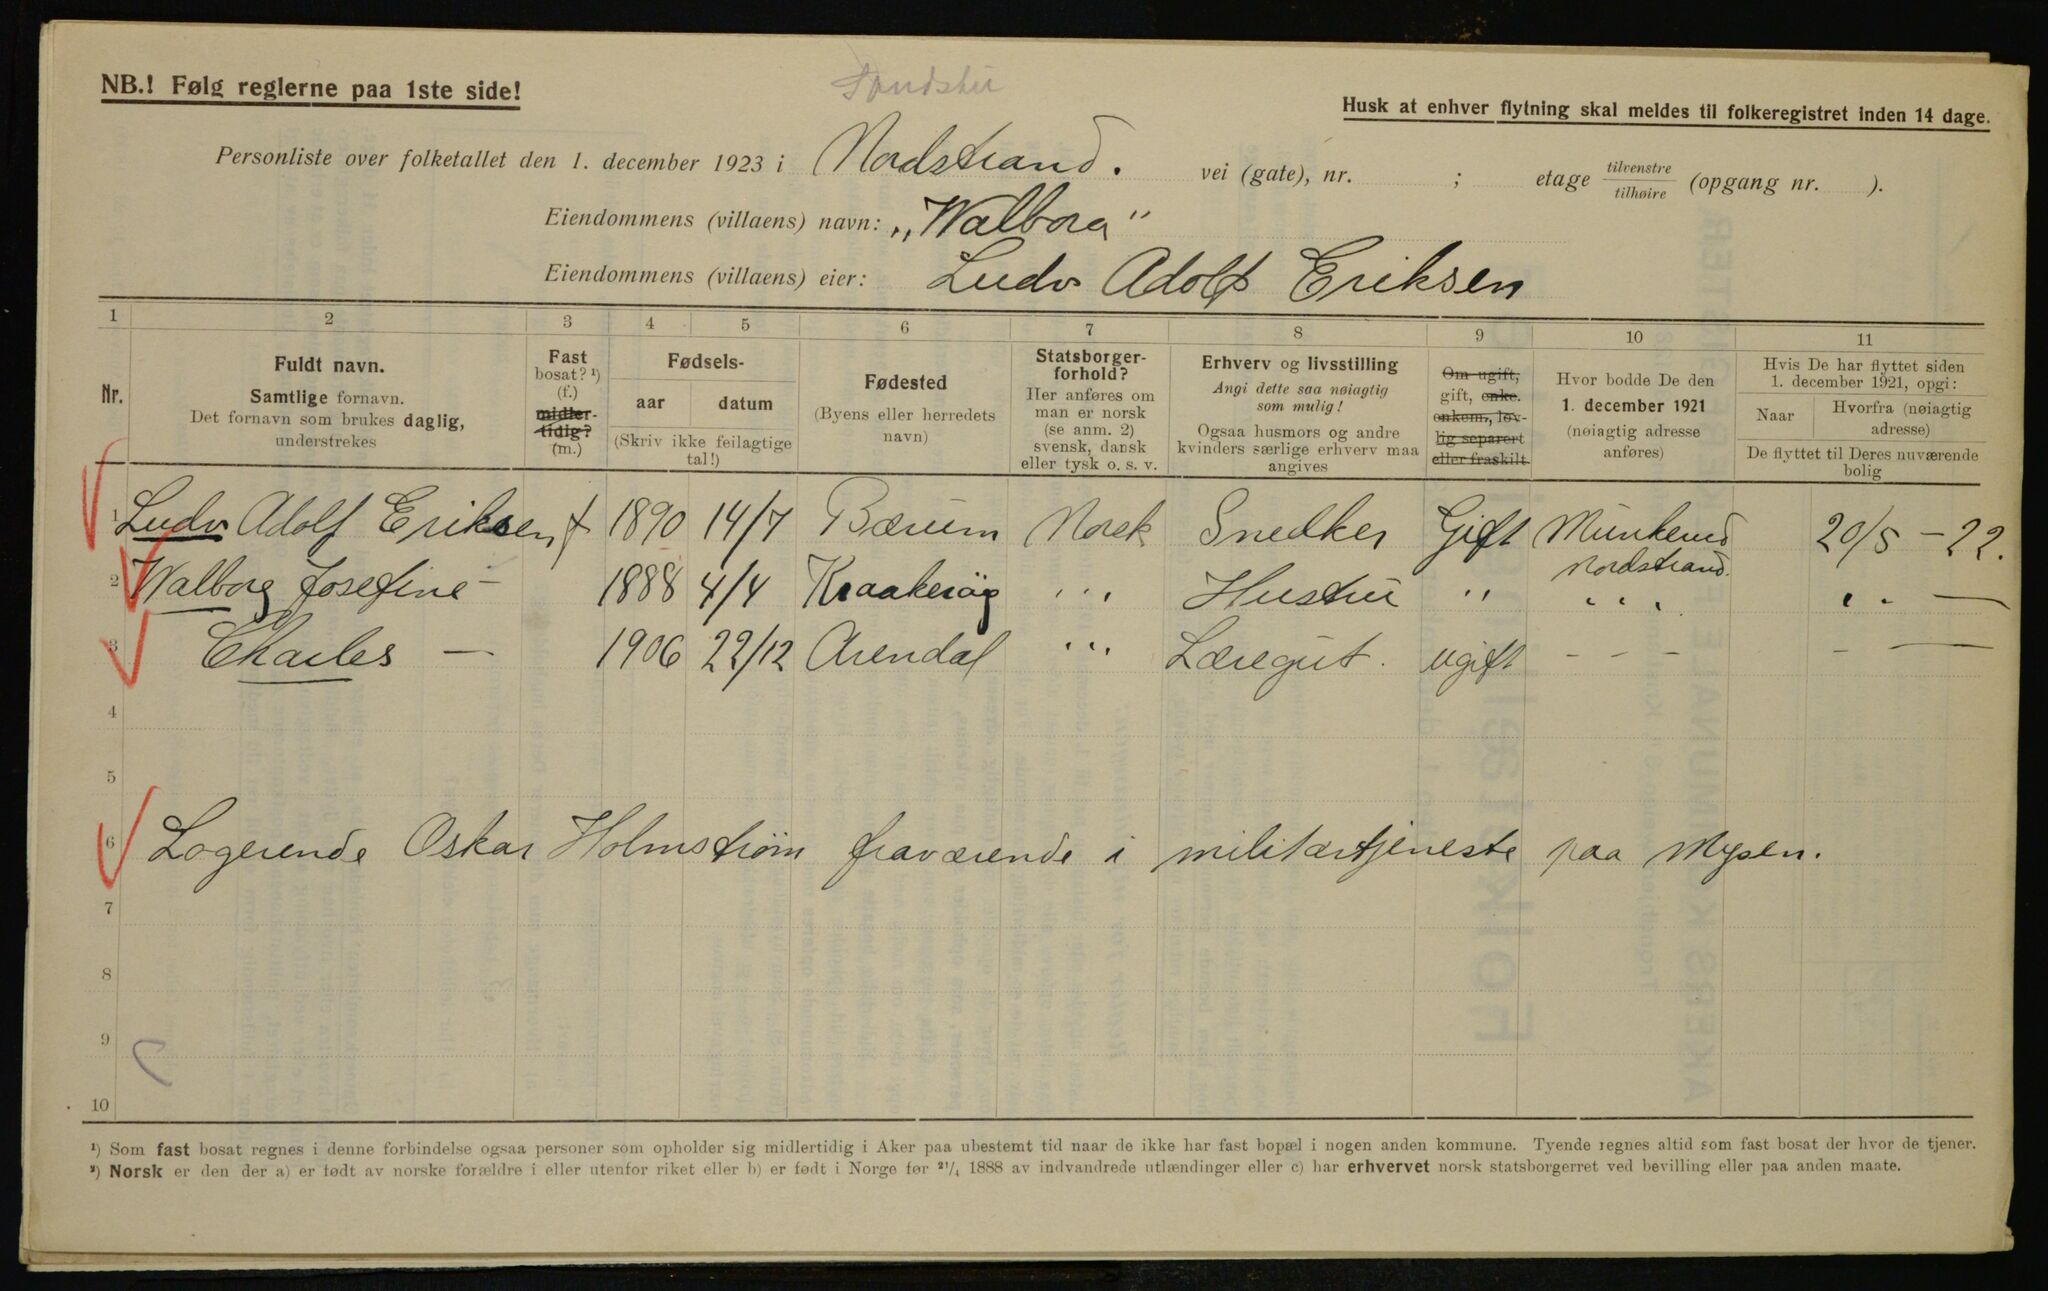 NB.! Følg reglerne paa 1ste side!
Husk at enhver flytning skal meldes til folkeregistret inden 14 dage.
Personliste over folketallet den 1. december 1923 i Nordstrand. vei (gate), nr. ; etage tilvenstre/tilhøire (opgang nr. ).
Eiendommens (villaens) navn: „Walborg"
Eiendommens (villaens) eier: Ludv Adolf Eriksen
1 2 3 4 5 6 7 8 9 10 11
Nr.
Fuldt navn.
Samtlige fornavn.
Det fornavn som brukes daglig,
understrekes
Fast
bosat? ¹)
(f.)
midler-
tidig?
(m.)
Fødsels-
aar datum
(Skriv ikke feilagtige
tal!)
Fødested
(Byens eller herredets
navn)
Statsborger-
forhold?
Her anføres om
man er norsk
(se anm. 2)
svensk, dansk
eller tysk o. s. v.
Erhverv og livsstilling
Angi dette saa nøiagtig
som mulig!
Ogsaa husmors og andre
kvinders særlige erhverv maa
angives
Om ugift,
gift, enke.
enkem., lov-
lig separert
eller fraskilt.
Hvor bodde De den
1. december 1921
(nøiagtig adresse
anføres)
Hvis De har flyttet siden
1. december 1921, opgi:
Naar Hvorfra (nøiagtig
adresse)
De flyttet til Deres nuværende
bolig
1 Ludv Adolf Eriksen f 1890 14/7 Bærum Norsk Snedker Gift Munkerud 20/5 – 22.
Nordstrand.
2 Walborg Josefine – 1888 4/4 Kraakerøy " Hustru " " " —
3 Charles — 1906 22/12 Arendal " Læregut. ugift – – – – —
4
5
6 Logerende Oskar Holmstrøm fraværende i militærtjeneste paa Mysen.
7
8
9
10
¹) Som fast bosat regnes i denne forbindelse ogsaa personer som opholder sig midlertidig i Aker paa ubestemt tid naar de ikke har fast bopæl i nogen anden kommune. Tyende regnes altid som fast bosat der hvor de tjener.
²) Norsk er den der a) er født av norske forældre i eller utenfor riket eller b) er født i Norge før ²¹/₄ 1888 av indvandrede utlændinger eller c) har erhvervet norsk statsborgerret ved bevilling eller paa anden maate.